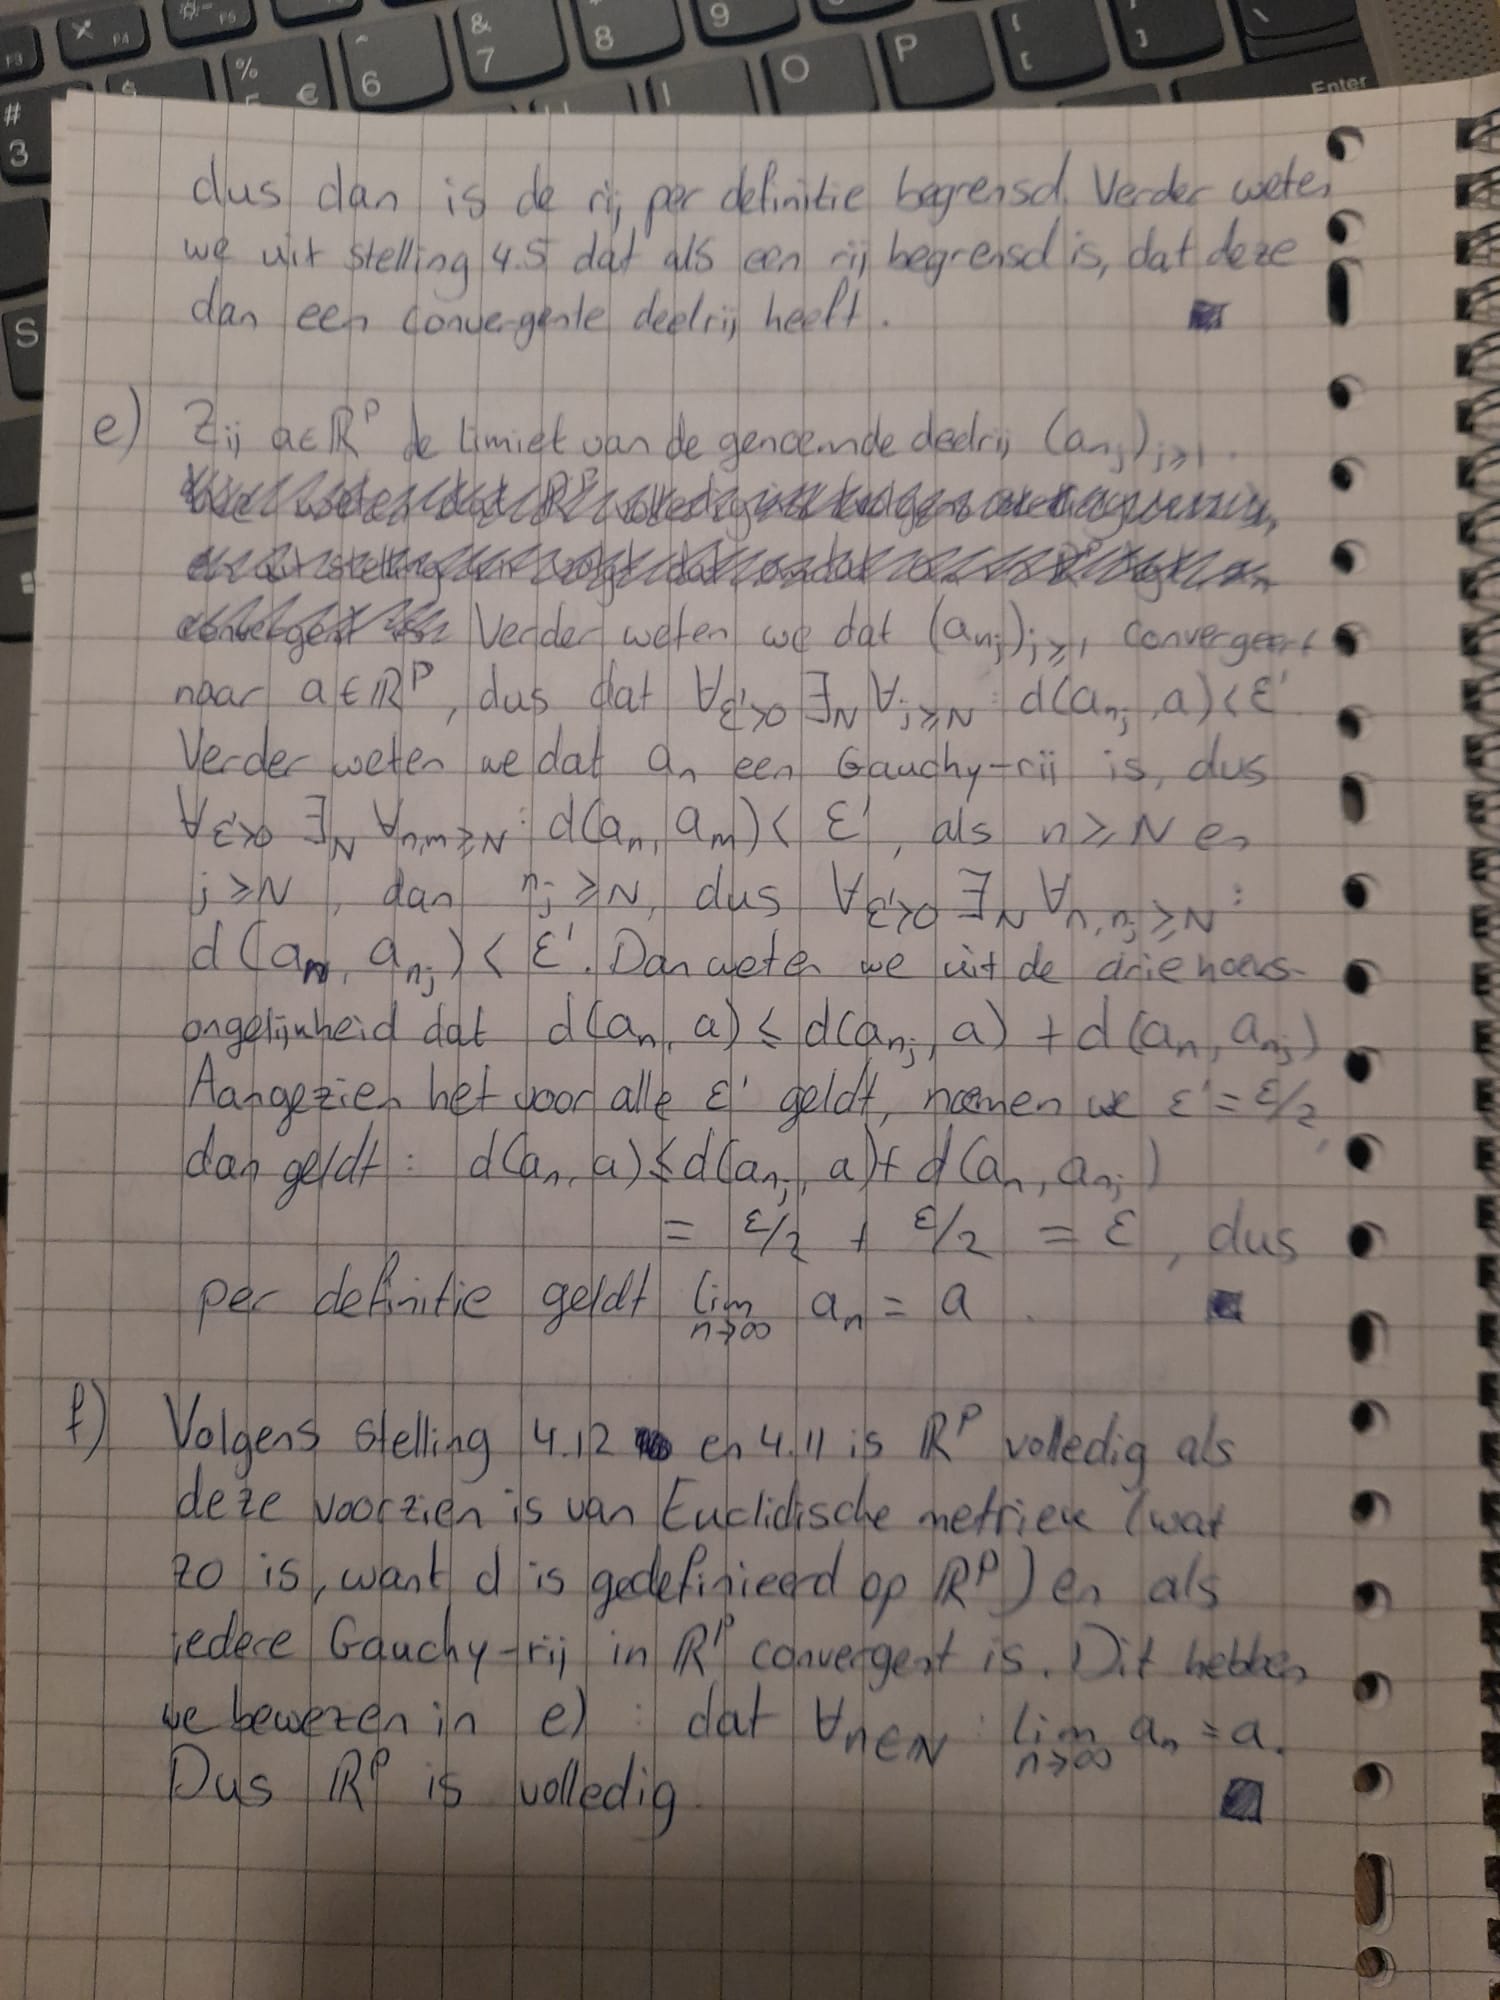 F3
F4
F5
#
3
$
%
5
€
^
6
&
7
8
9
I
O
P
[
{
]
}
\
Enter
S
dus dan is de rij per definitie begrensd. Verder weten
we uit stelling 4.5 dat als een rij begrensd is, dat deze
dan een convergente deelrij heeft. ■
e) Zij a∈ℝᵖ de limiet van de genoemde deelrij (a_{n_j})_{j≥1}.
Verder weten we dat (a_{n_j})_{j≥1} convergeert
naar a∈ℝᵖ, dus dat ∀_{ε'>0} ∃_N ∀_{j≥N}: d(a_{n_j}, a) < ε'
Verder weten we dat a_n een Gauchy-rij is, dus
∀_{ε'>0} ∃_N ∀_{n,m≥N}: d(a_n, a_m) < ε', als n≥N en
j≥N, dan n_j≥N, dus ∀_{ε'>0} ∃_N ∀_{n,n_j≥N}:
d(a_n, a_{n_j}) < ε'. Dan weten we uit de driehoeks-
ongelijkheid dat d(a_n, a) ≤ d(a_{n_j}, a) + d(a_n, a_{n_j})
Aangezien het voor alle ε' geldt, noemen we ε' = ε/2,
dan geldt: d(a_n, a) ≤ d(a_{n_j}, a) + d(a_n, a_{n_j})
= ε/2 + ε/2 = ε, dus
per definitie geldt lim_{n→∞} a_n = a. ■
f) Volgens stelling 4.12 en 4.11 is ℝᵖ volledig als
deze voorzien is van Euclidische metriek (wat
zo is, want d is gedefinieerd op ℝᵖ) en als
iedere Gauchy-rij in ℝᵖ convergent is. Dit hebben
we bewezen in e): dat ∀_{n∈ℕ}: lim_{n→∞} a_n = a.
Dus ℝᵖ is volledig. ■